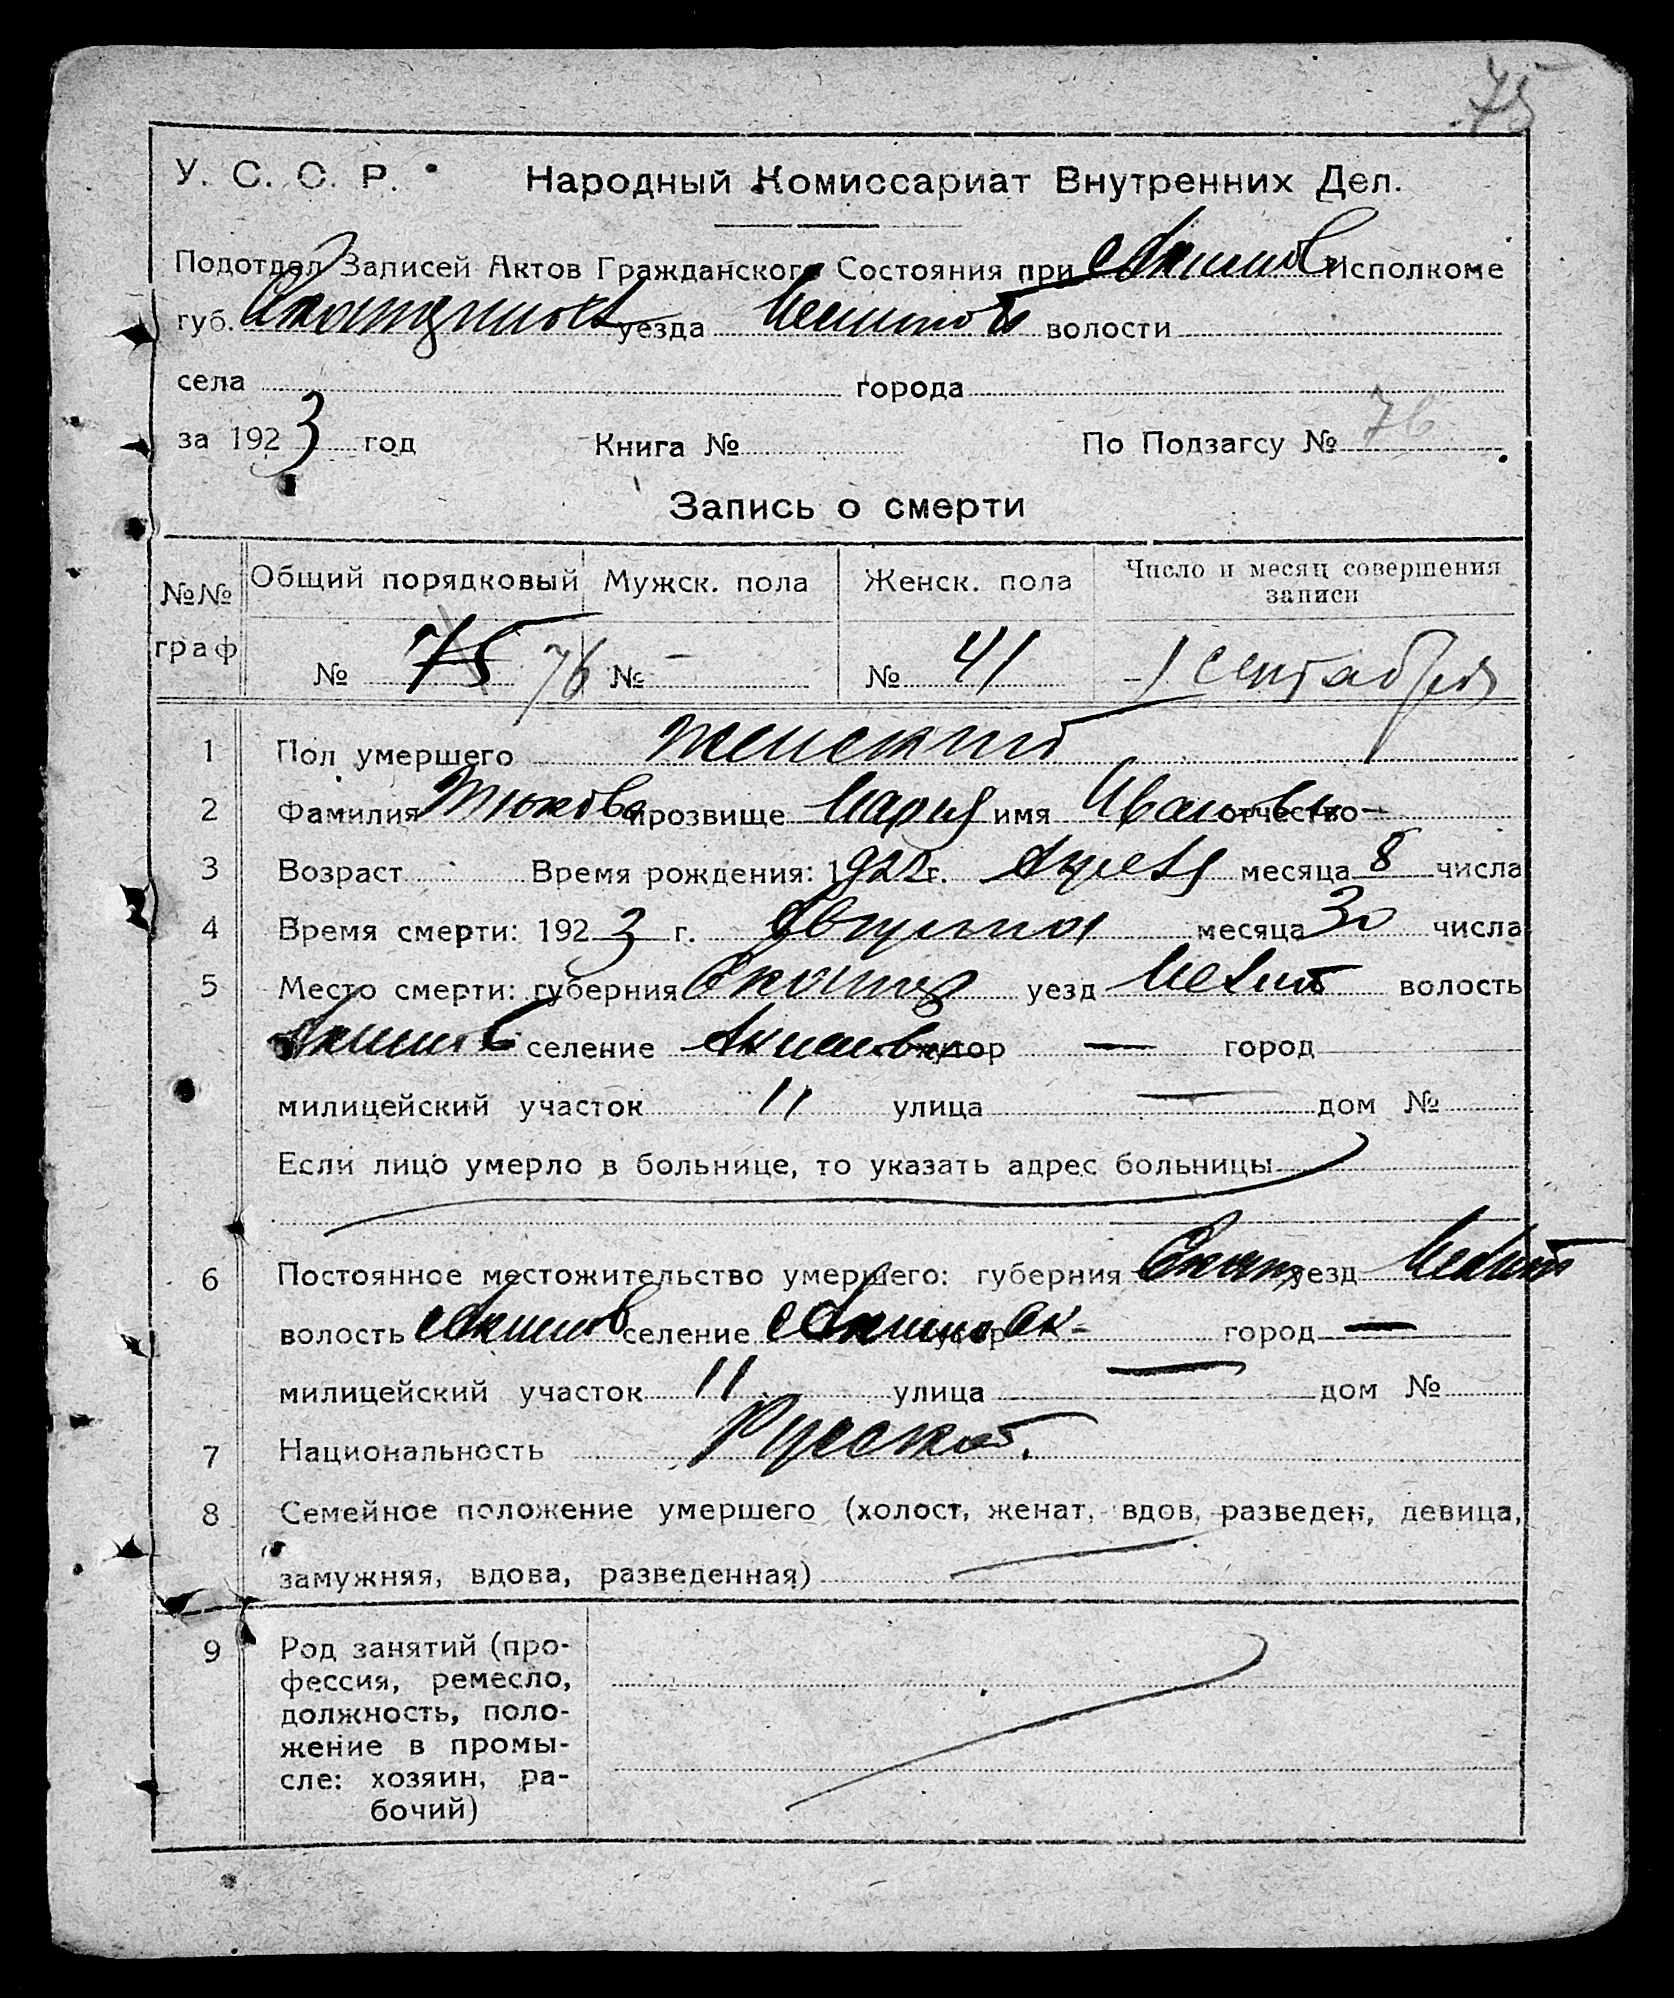 75
У. С. С. Р. Народный Комиссариат Внутренних Дел.
Подотдел Записей Актов Гражданского Состояния при Акимов Исполкоме
губ. уезда волости
села города
за 1923 год Книга № По Подзагсу № 76
Запись о смерти
№№ граф Общий порядковый Мужск. пола Женск. пола Число и месяц совершения записи
№ 75 76 № — № 41 1 сентября
1 Пол умершего женский
2 Фамилия прозвище Мария имя Иванов отчество —
3 Возраст Время рождения: 1922 г. Апреля месяца 8 числа
4 Время смерти: 1923 г. Августа месяца 30 числа
5 Место смерти: губерния Екатер уезд Мелит волость
Акимов селение Акимовк хутор — город
милицейский участок 11 улица — дом №
Если лицо умерло в больнице, то указать адрес больницы
6 Постоянное местожительство умершего: губерния Екат уезд Мелит
волость Акимов селение Акимовк хутор - город —
милицейский участок 11 улица — дом №
7 Национальность Русской.
8 Семейное положение умершего (холост, женат, вдов, разведен, девица,
замужняя, вдова, разведенная)
9 Род занятий (про-
фессия, ремесло,
должность, поло-
жение в промы-
сле: хозяин, ра-
бочий)